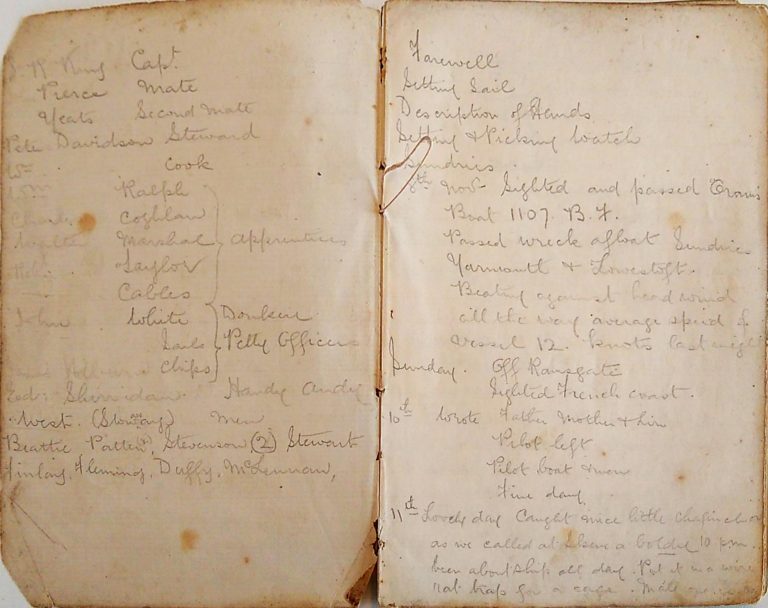 King Capt.
Pierce Mate
Yeats Second Mate
Pete Davidson Steward
Cook
Ralph
Coghlan
Marshal Apprentices
Taylor
Cables
John White Donkey
Sails Petty Officers
Chips
Sherridan. Handy Andy
West. (Stowaway) Men
Beattie Patten, Stevenson (2) Stewart
Finlay, Fleming, Duffy, McLennan,
Farewell
Setting Sail
Description of Hands
Setting & Picking Watch
Sundries.
8th Nov Sighted and passed
Boat 1107. B.F.
Passed wreck afloat Sundries
Yarmouth & Lowestoft.
Beating against head wind
all the way average speed of
vessel 12. Knots last night
Sunday. Off Ramsgate
Sighted French coast.
10th Wrote Father Mother &
Pilot left
Pilot boat & men
Fine day
11th Lovely day Caught nice little chaffinch
as we called at 10 p.m.
been about ship all day. Put it in a wire
rat trap for a cage. Mate